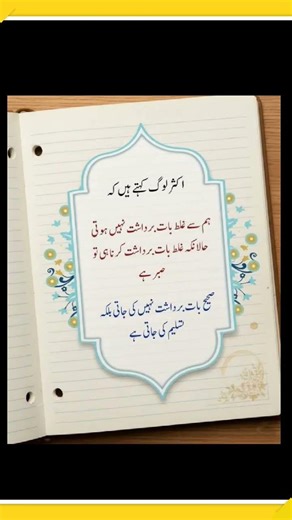 اکثر لوگ کہتے ہیں کہ
ہم سے غلط بات برداشت نہیں ہوتی
حالانکہ غلط بات برداشت کرنا ہی تو
صبر ہے
صحیح بات برداشت نہیں کی جاتی بلکہ
تسلیم کی جاتی ہے